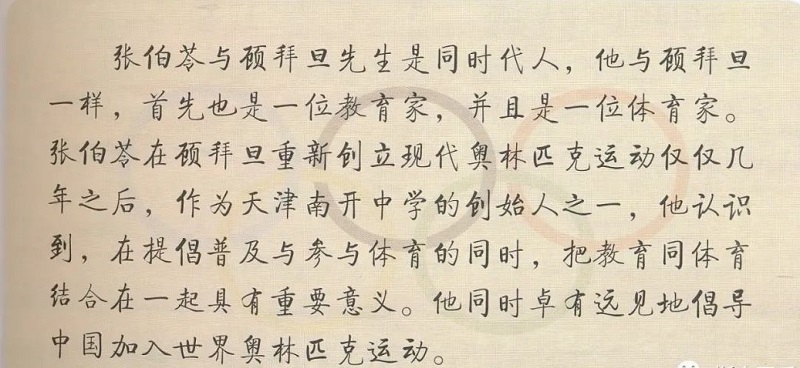 张伯苓与顾拜旦先生是同时代人，他与顾拜旦
一样，首先也是一位教育家，并且是一位体育家。
张伯苓在顾拜旦重新创立现代奥林匹克运动仅仅几
年之后，作为天津南开中学的创始人之一，他认识
到，在提倡普及与参与体育的同时，把教育同体育
结合在一起具有重要意义。他同时卓有远见地倡导
中国加入世界奥林匹克运动。